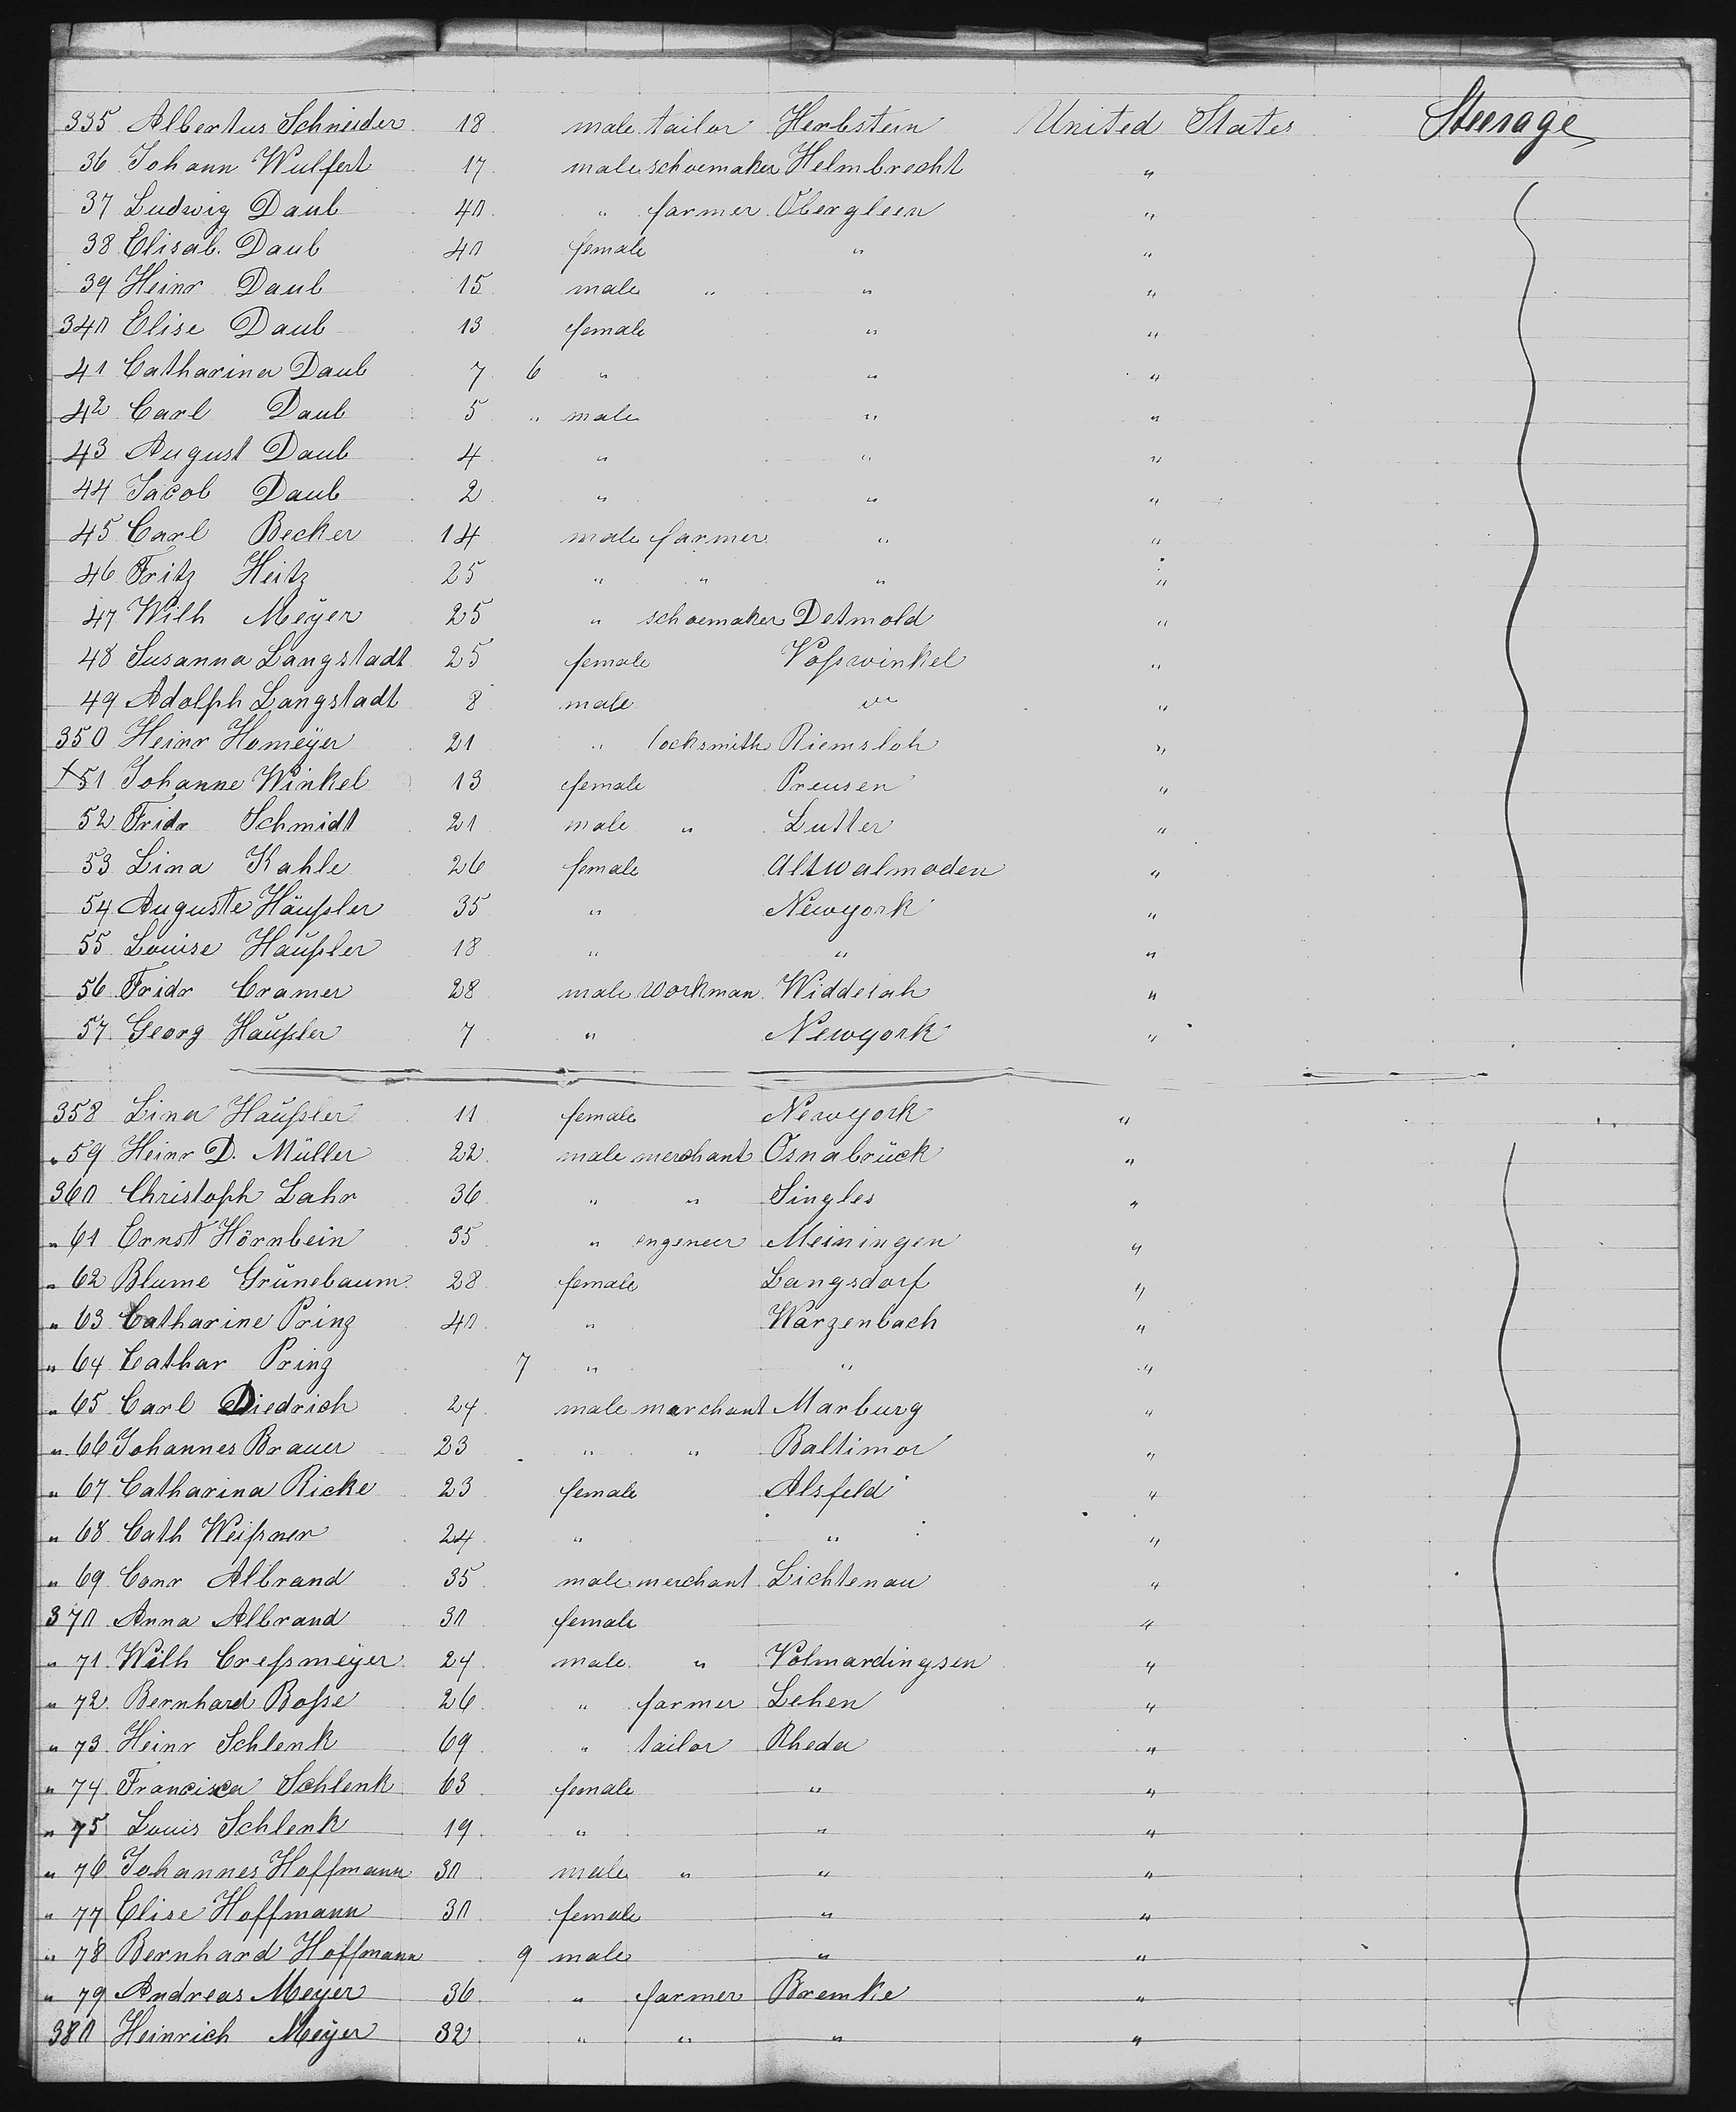 335 Albertus Schneider 18 male tailor Herbstein United States Steerage
36 Johann Wulfert 17 male schoemaker Helmbrecht "
37 Ludwig Daub 40 " farmer Obergleen "
38 Elisab. Daub 40 female " "
39 Heinr Daub 15 male " " "
340 Elise Daub 13 female " "
41 Catharina Daub 7 6 " " "
42 Carl Daub 5 " male " "
43 August Daub 4 " " "
44 Jacob Daub 2 " " "
45 Carl Becker 14 male farmer " "
46 Fritz Heitz 25 " " " "
47 Wilh Meÿer 25 " schoemaker Detmold "
48 Susanna Langstadt 25 female Voßwinkel "
49 Adolph Langstadt 8 male " "
350 Heinr Homeÿer 21 " locksmith Riemsloh "
51 Johanne Winkel 13 female Preusen "
52 Fridr Schmidt 21 male " Lutter "
53 Lina Kahle 26 female Altwalmoden "
54 Auguste Häußler 35 " Newyork "
55 Louise Haußler 18 " " "
56 Fridr Cramer 28 male workman Widdelah "
57 Georg Haußler 7 " Newyork "
358 Lina Haußler 11 female Newyork "
" 59 Heinr D. Müller 22 male merchant Osnabrück "
360 Christoph Lahr 36 " " Singles "
" 61 Ernst Hörnbein 35 " engeneer Meiningen "
" 62 Blume Grünebaum 28 female Langsdorf "
" 63 Catharine Prinz 40 " Warzenbach "
" 64 Cathar Prinz 7 " " "
" 65 Carl Diedrich 24 male merchant Marburg "
" 66 Johannes Brauer 23 " " Baltimor "
" 67 Catharina Ricke 23 female Alsfeld "
" 68 Cath Weißner 24 " " "
" 69 Conr Albrand 35 male merchant Lichtenau "
370 Anna Albrand 30 female "
" 71 Wilh Creßmeÿer 24 male " Volmardingsen "
" 72 Bernhard Boße 26 " farmer Lehen "
" 73 Heinr Schlenk 69 " tailor Rheda "
" 74 Francisca Schlenk 63 female " "
" 75 Louis Schlenk 19 " " "
" 76 Johannes Hoffmann 30 male " " "
" 77 Elise Hoffmann 30 female " "
" 78 Bernhard Hoffmann 9 male " "
" 79 Andreas Meyer 36 " farmer Bremke "
380 Heinrich Meÿer 32 " " " "